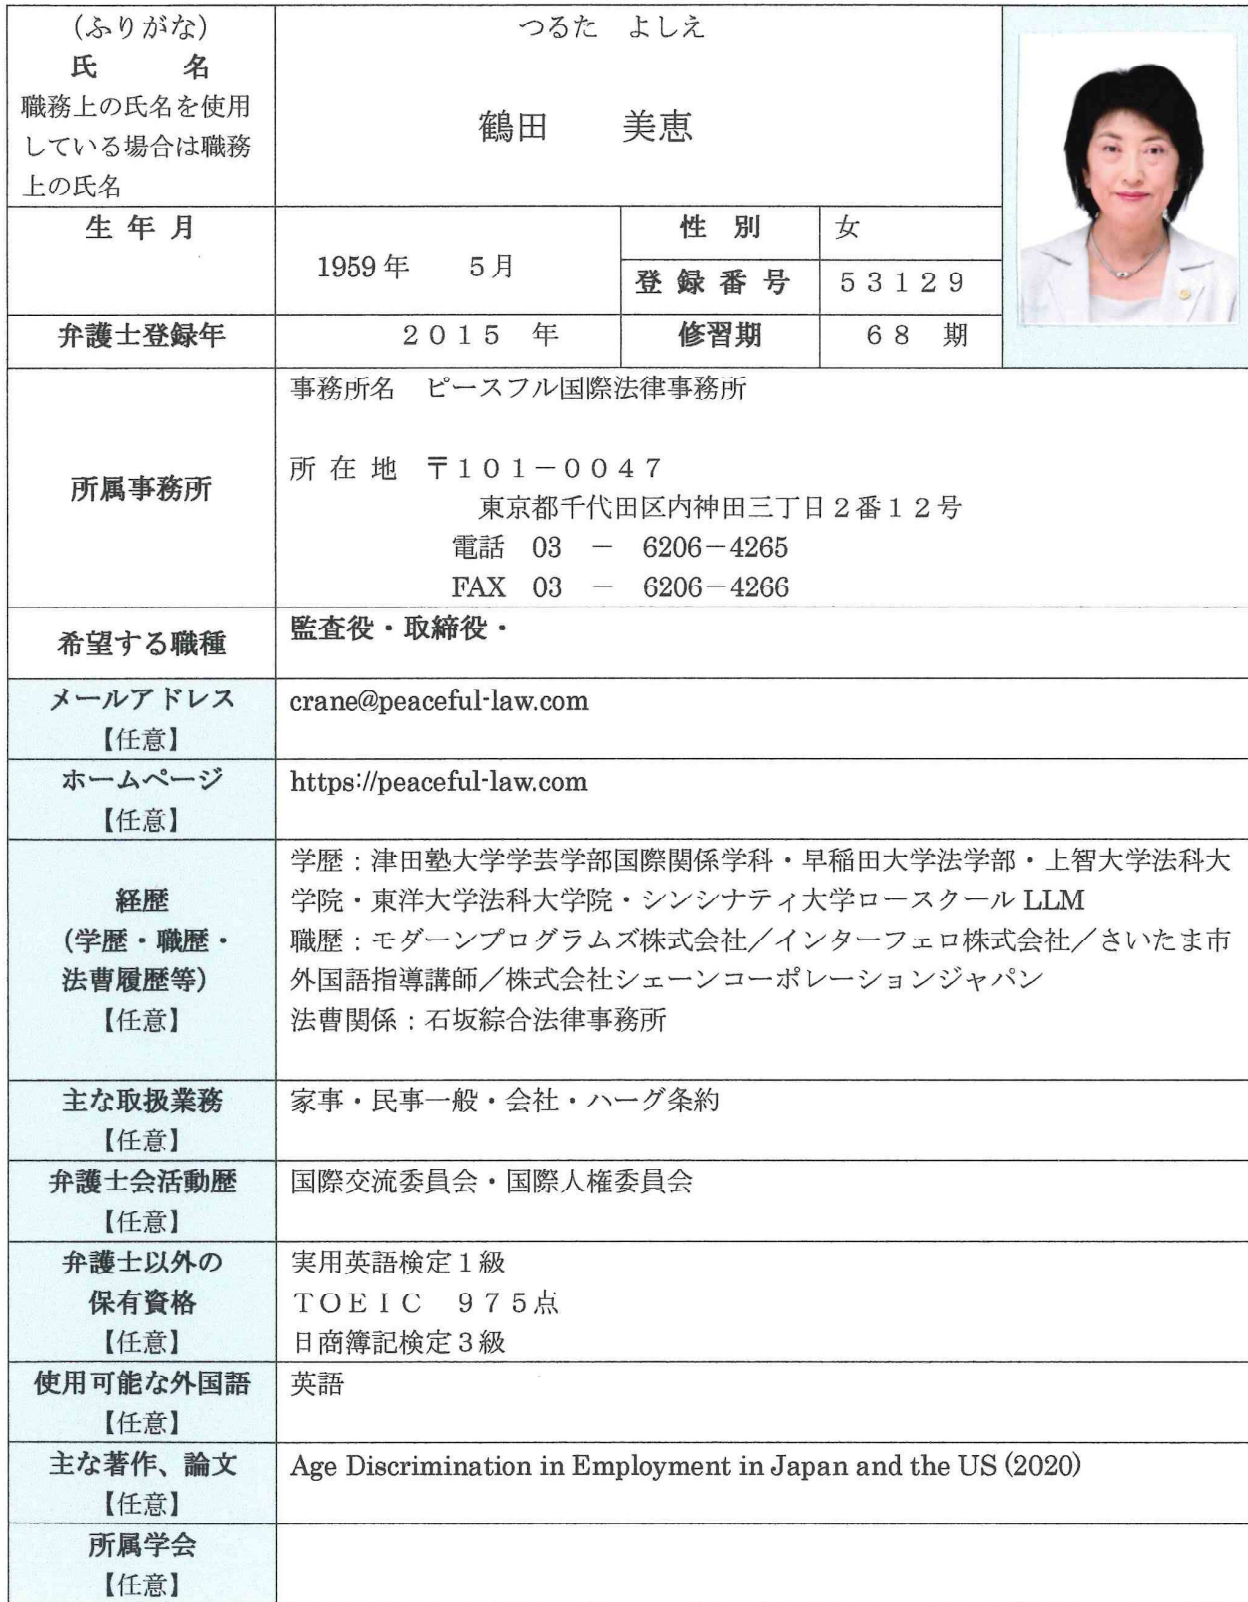 (ふりがな)
氏　　名
職務上の氏名を使用
している場合は職務
上の氏名
つるた　よしえ
鶴田　　美恵
生 年 月
1959 年　　5月
性　別
女
登 録 番 号
５３１２９
弁護士登録年
２０１５　年
修習期
６８　期
所属事務所
事務所名　ピースフル国際法律事務所
所 在 地　〒１０１－００４７
東京都千代田区内神田三丁目２番１２号
電話　03　－　6206－4265
FAX　03　－　6206－4266
希望する職種
監査役・取締役・
メールアドレス
【任意】
crane@peaceful-law.com
ホームページ
【任意】
https://peaceful-law.com
経歴
(学歴・職歴・
法曹履歴等)
【任意】
学歴：津田塾大学学芸学部国際関係学科・早稲田大学法学部・上智大学法科大
学院・東洋大学法科大学院・シンシナティ大学ロースクール LLM
職歴：モダーンプログラムズ株式会社／インターフェロ株式会社／さいたま市
外国語指導講師／株式会社シェーンコーポレーションジャパン
法曹関係：石坂綜合法律事務所
主な取扱業務
【任意】
家事・民事一般・会社・ハーグ条約
弁護士会活動歴
【任意】
国際交流委員会・国際人権委員会
弁護士以外の
保有資格
【任意】
実用英語検定１級
ＴＯＥＩＣ　９７５点
日商簿記検定３級
使用可能な外国語
【任意】
英語
主な著作、論文
【任意】
Age Discrimination in Employment in Japan and the US (2020)
所属学会
【任意】